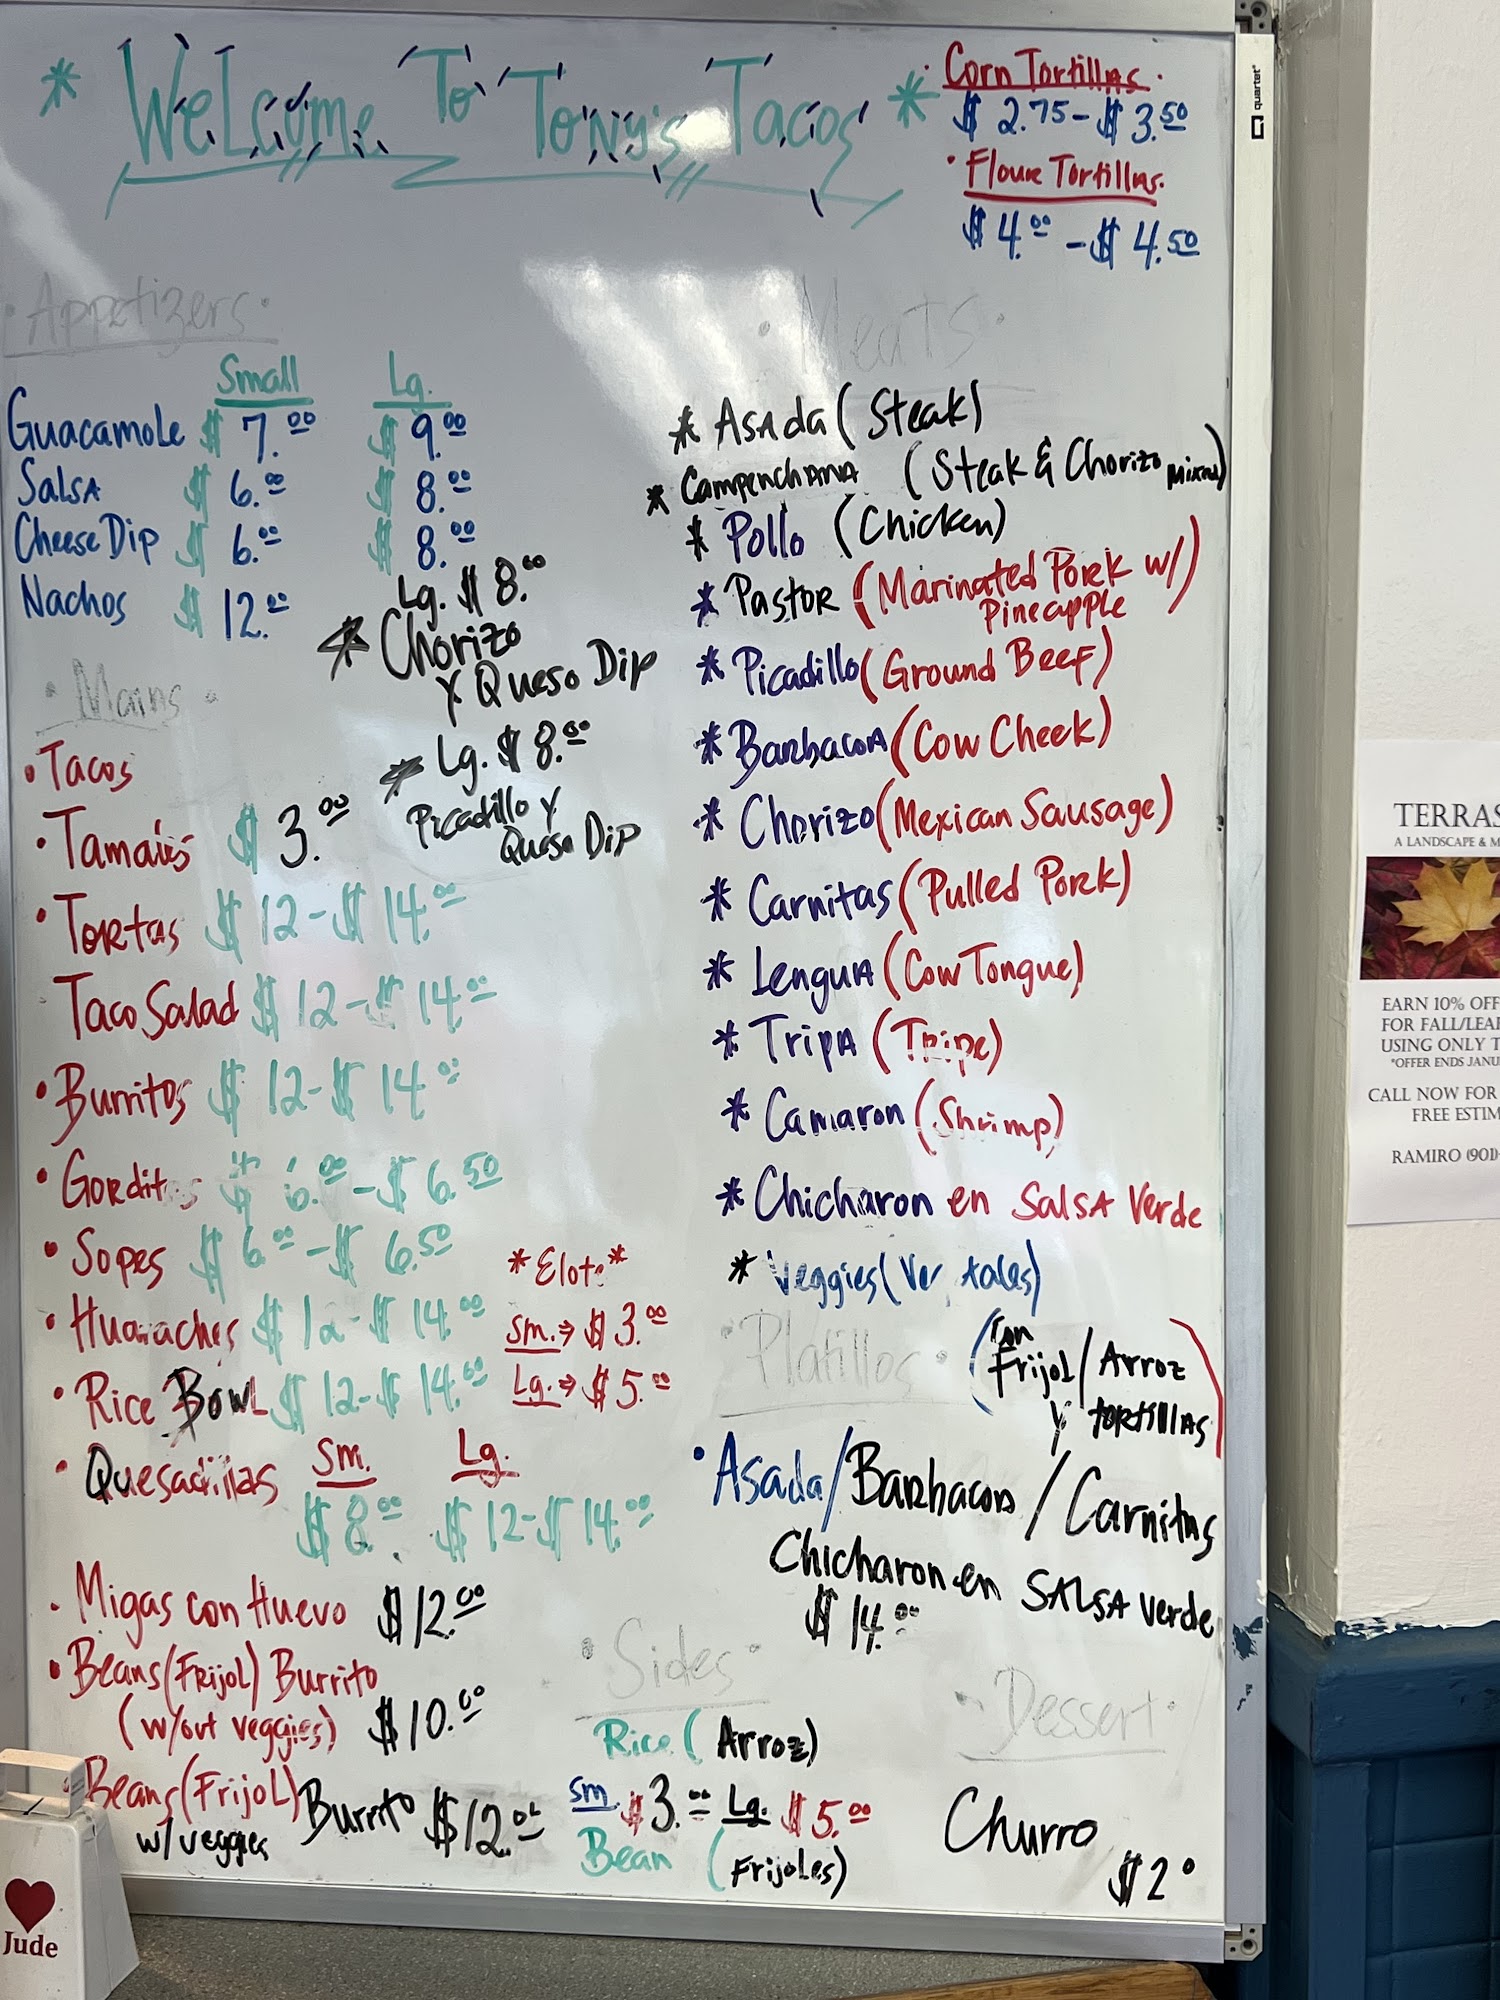 * Welcome To Tony's Tacos *
· Corn Tortillas ·
$ 2.75 - $ 3.50
· Flour Tortillas.
$ 4.00 - $ 4.50
quartet
· Appetizers ·
Small Lg.
Guacamole $ 7.00 $ 9.00
Salsa $ 6.00 $ 8.00
Cheese Dip $ 6.00 $ 8.00
Nachos $ 12.00
Lg. $ 8.00
* Chorizo
Y Queso Dip
* Lg. $ 8.00
Picadillo Y
Queso Dip
· Mains ·
• Tacos
• Tamales $ 3.00
• Tortas $ 12 - $ 14.00
Taco Salad $ 12 - $ 14.00
• Burritos $ 12 - $ 14.00
• Gorditas $ 6.00 - $ 6.50
• Sopes $ 6.00 - $ 6.50
• Huaraches $ 12 - $ 14.00
• Rice Bowl $ 12 - $ 14.00
* Elote *
Sm. → $ 3.00
Lg. → $ 5.00
• Quesadillas Sm. Lg.
$ 8.00 $ 12 - $ 14.00
• Migas con Huevo $12.00
• Beans (Frijol) Burrito
(w/out veggies) $10.00
• Beans (Frijol) Burrito $12.00
w/ veggies
· Meats ·
* Asada (Steak)
* Campenchana (Steak & Chorizo Mixed)
* Pollo (Chicken)
* Pastor (Marinated Pork w/
Pineapple)
* Picadillo (Ground Beef)
* Barbacoa (Cow Cheek)
* Chorizo (Mexican Sausage)
* Carnitas (Pulled Pork)
* Lengua (Cow Tongue)
* Tripa (Tripe)
* Camaron (Shrimp)
* Chicharon en Salsa Verde
* Veggies (Ver tales)
· Platillos · (Con
Frijol / Arroz
Y tortillas)
• Asada / Barbacoa / Carnitas
Chicharon en Salsa Verde
$ 14.00
· Sides ·
Rice (Arroz)
Sm $ 3.00 Lg. $ 5.00
Bean (Frijoles)
· Dessert ·
Churro
$ 2.0
Jude
TERRAS
A LANDSCAPE & M
EARN 10% OFF
FOR FALL/LEA
USING ONLY T
*OFFER ENDS JANU
CALL NOW FOR
FREE ESTIM
RAMIRO (901)-